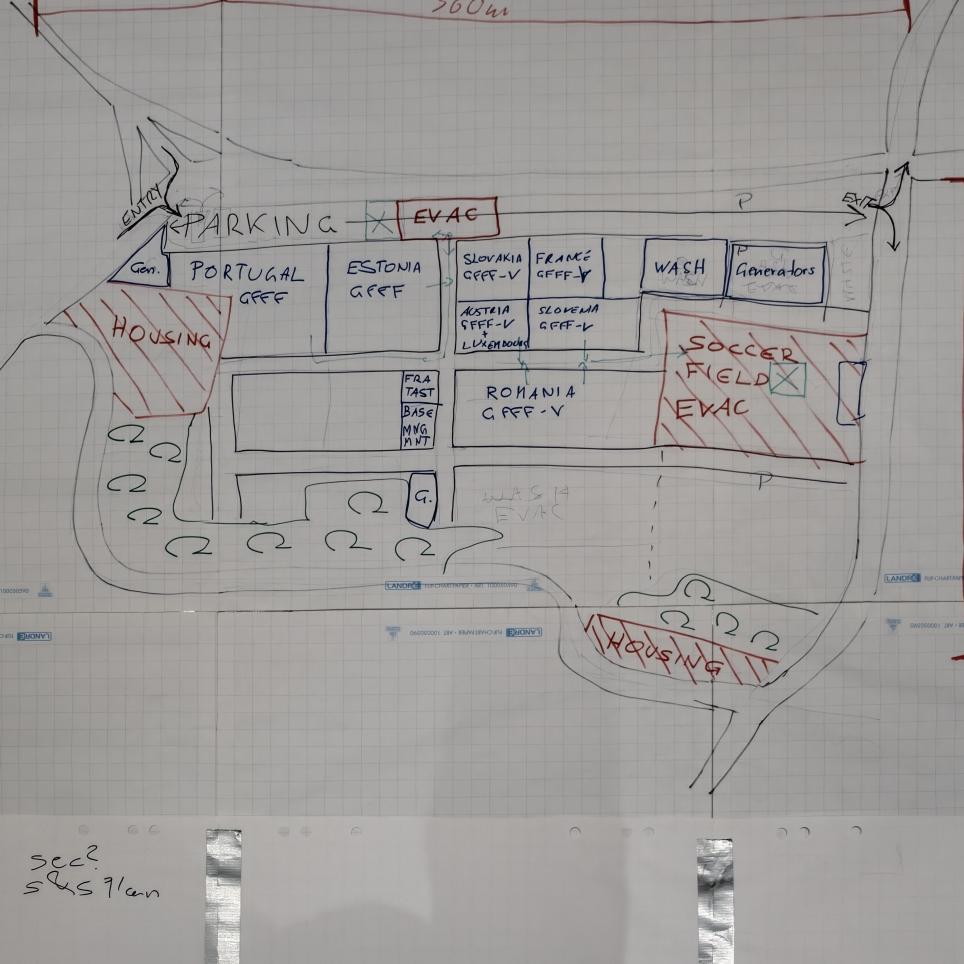 360m
ENTRY
PARKING
EVAC
P
EXIT
Gen.
PORTUGAL
GFFF
ESTONIA
GFFF
SLOVAKIA
GFFF-V
FRANCE
GFFF-V
WASH
P
Generators
AUSTRIA
GFFF-V
+
LUXEMBOURG
SLOVENIA
GFFF-V
HOUSING
SOCCER
FIELD
EVAC
FRA
TAST
BASE
MNG
MNT
ROMANIA
GFFF-V
G.
P
EVAC
LANDRÉ
LANDRÉ
LANDRÉ
LANDRÉ
HOUSING
sec?